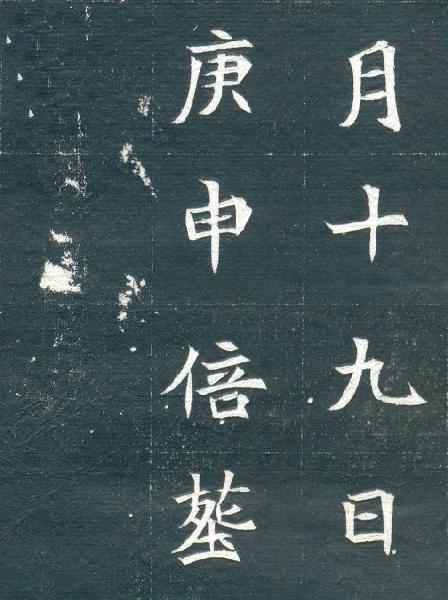 月十九日
庚申倍塟